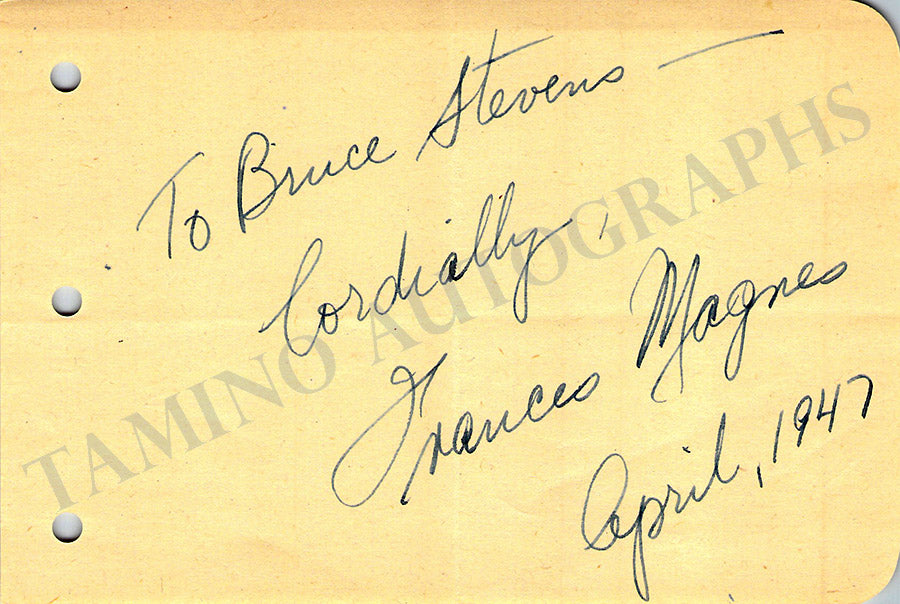 To Bruce Stevens —
Cordially,
Frances Magnes
April, 1947
TAMINO AUTOGRAPHS